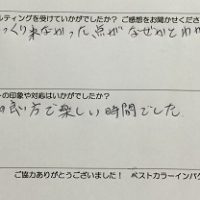 ルティングを受けていかがでしたか? ご感想をお聞かせくださ
っくり来なかった点がなぜかとわか
の印象や対応はいかがでしたか?
良い方で楽しい時間でした
ご協力ありがとうございました! ベストカラーインパク